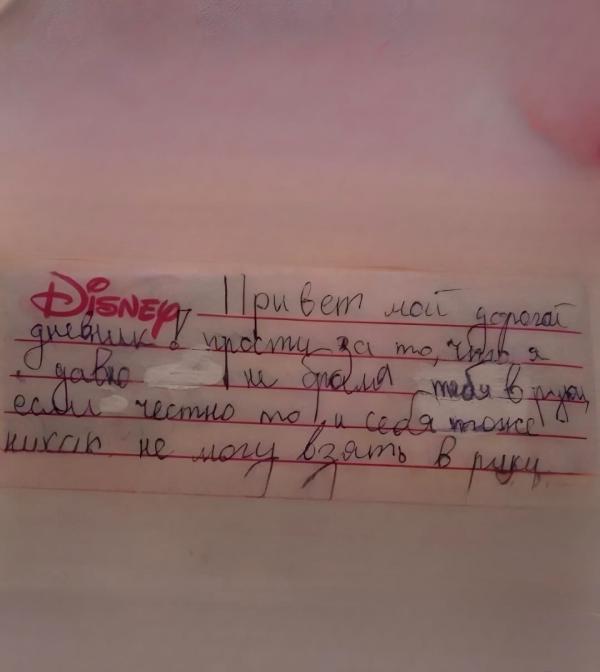 Disney Привет мой дорогой
дневник! прости за то, что я
давно не брала тебя в руки
если честно то и себя тоже
никак не могу взять в руки